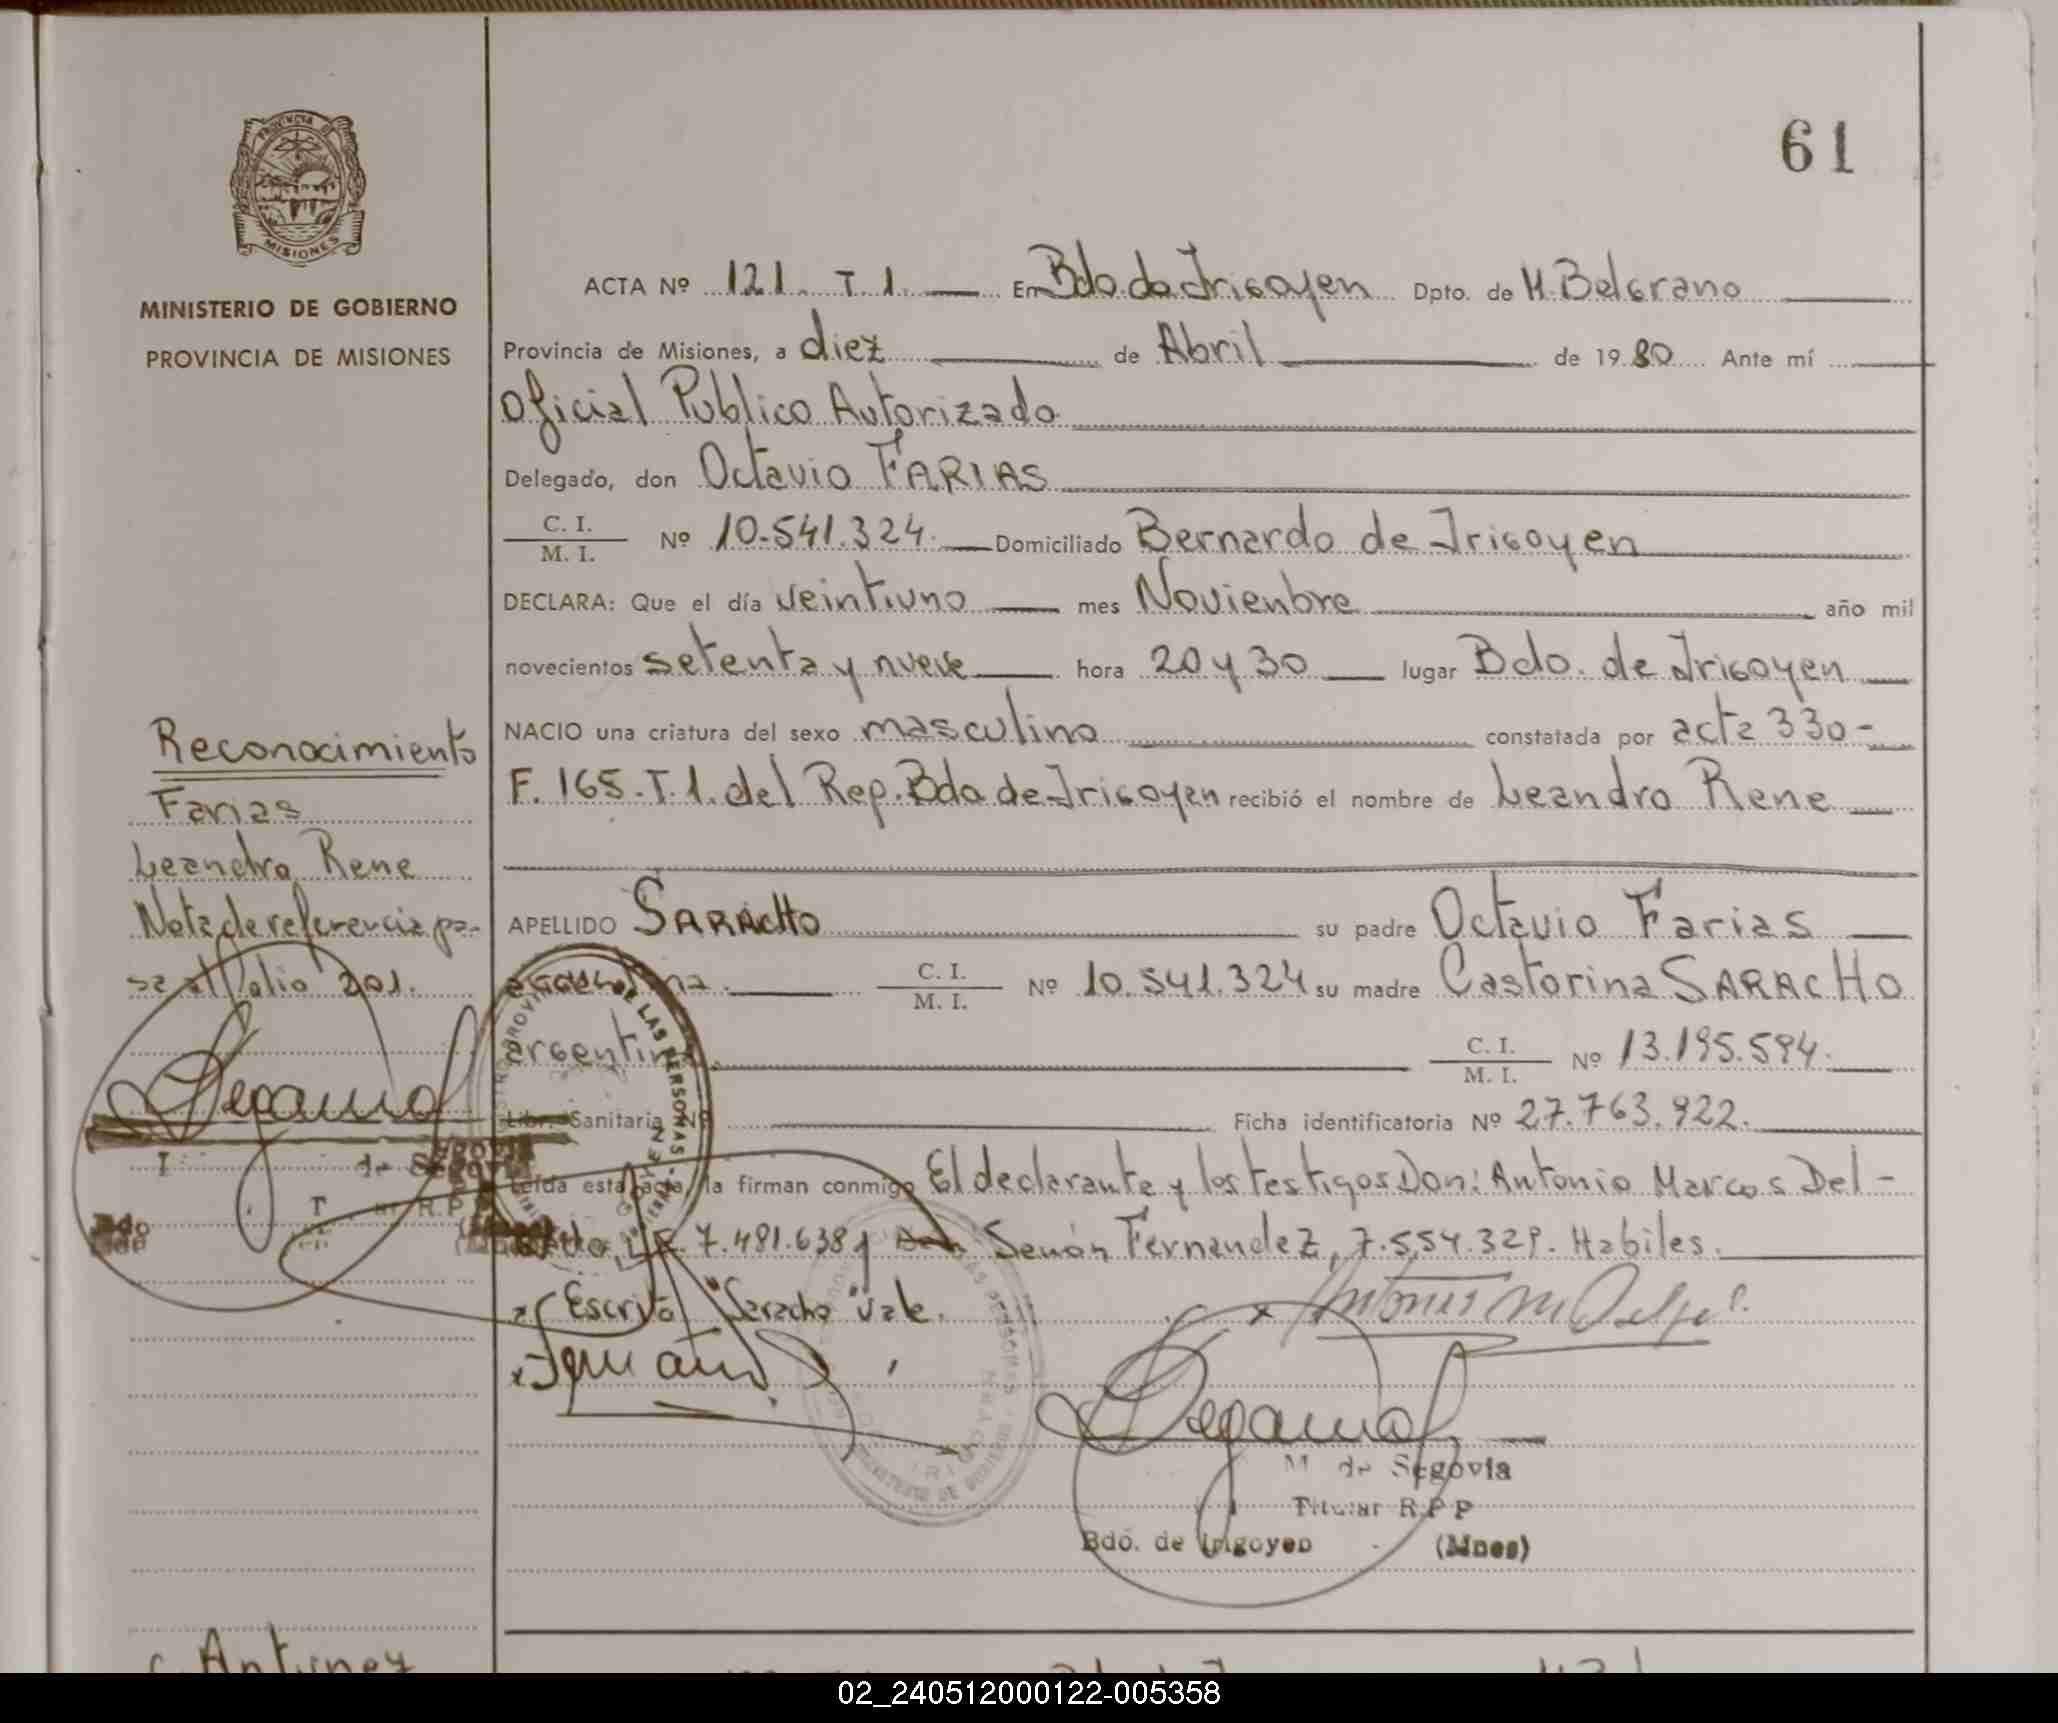 61
PROVINCIA DE
MISIONES
MINISTERIO DE GOBIERNO
PROVINCIA DE MISIONES
ACTA Nº 121. T. 1. En Bdo. de Irigoyen Dpto. de M. Belgrano
Provincia de Misiones, a diez de Abril de 1980 Ante mí
Oficial Publico Autorizado
Delegado, don Octavio FARIAS
C. I.
M. I. Nº 10.541.324. Domiciliado Bernardo de Irigoyen
DECLARA: Que el día veintiuno mes Novienbre año mil
novecientos setenta y nueve hora 20 y 30 lugar Bdo. de Irigoyen
NACIO una criatura del sexo masculino constatada por acta 330-
F. 165. T. 1. del Rep. Bdo de Irigoyen recibió el nombre de Leandro Rene
APELLIDO SARACHO su padre Octavio Farias
C. I.
M. I. Nº 10.541.324 su madre Castorina SARACHO
argentina C. I.
M. I. Nº 13.195.594.
Libr. Sanitaria Nº Ficha identificatoria Nº 27.763.922.
Leída esta acta, la firman conmigo El declarante y los testigos Don: Antonio Marcos Del-
7.481.638 y Senón Fernandez, 7.554.329. Habiles.
Escrito "Saracho" Vale.
M. de Segovia
Titular R.P.P
Bdo. de Irigoyen (Mnes)
Reconocimiento
Farias
Leandro Rene
Nota de referencia pa-
sa al folio 201.
de Segovia
R.P.P
Antunez
02_240512000122-005358